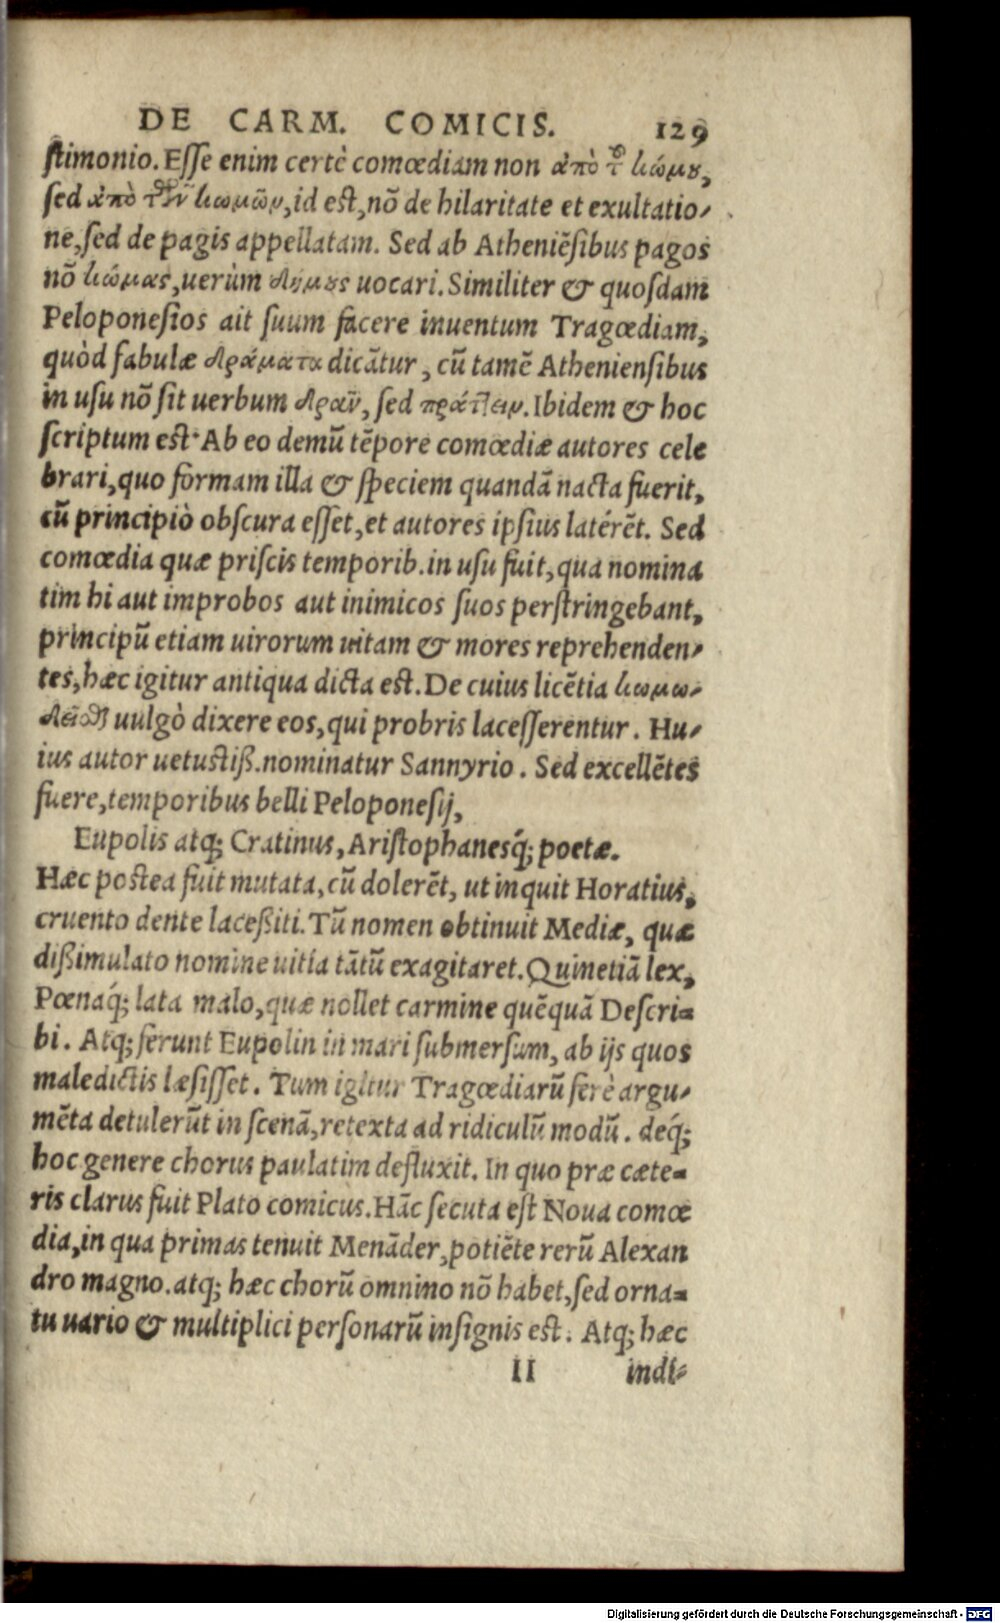 DE CARM. COMICIS. 129
stimonio. Esse enim certè comœdiam non ἀπὸ τοῦ κώμου,
sed ἀπὸ τῶν κωμῶν, id est, nõ de hilaritate et exultatio-
ne, sed de pagis appellatam. Sed ab Atheniẽsibus pagos
nõ κώμας, uerùm δήμους uocari. Similiter & quosdam
Peloponesios ait suum facere inuentum Tragœdiam,
quòd fabulæ δράματα dicãtur, cũ tamẽ Atheniensibus
in usu nõ sit uerbum δρᾶν, sed πράττειν. Ibidem & hoc
scriptum est. Ab eo demũ tẽpore comœdiæ autores cele
brari, quo formam illa & speciem quandã nacta fuerit,
cũ principiò obscura esset, et autores ipsius latérẽt. Sed
comœdia quæ priscis temporib. in usu fuit, qua nomina
tim hi aut improbos aut inimicos suos perstringebant,
principũ etiam uirorum uitam & mores reprehenden-
tes, hæc igitur antiqua dicta est. De cuius licẽtia κωμω-
δεῖσθαι uulgò dixere eos, qui probris lacesserentur. Hu-
ius autor uetustiß. nominatur Sannyrio. Sed excellẽtes
fuere, temporibus belli Peloponesij,
Eupolis atq; Cratinus, Aristophanesq́; poetæ.
Hæc postea fuit mutata, cũ dolerẽt, ut inquit Horatius,
cruento dente laceßiti. Tũ nomen obtinuit Mediæ, quæ
dißimulato nomine uitia tãtũ exagitaret. Quinetiã lex,
Pœnaq́; lata malo, quæ nollet carmine quẽquã Descri-
bi. Atq; ferunt Eupolin in mari submersum, ab ijs quos
maledictis læsisset. Tum igitur Tragœdiarũ ferè argu-
mẽta detulerũt in scenã, retexta ad ridiculũ modũ. deq́;
hoc genere chorus paulatim defluxit. In quo præ cæte-
ris clarus fuit Plato comicus. Hãc secuta est Noua comœ
dia, in qua primas tenuit Menãder, potiẽte rerũ Alexan
dro magno. atq; hæc chorũ omnino nõ habet, sed orna-
tu uario & multiplici personarũ insignis est. Atq; hæc
II indi-
Digitalisierung gefördert durch die Deutsche Forschungsgemeinschaft - DFG